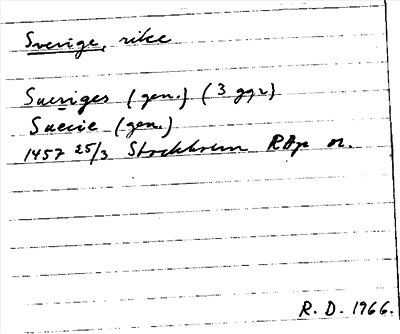 Sverige, rike
Sueriges (gen.) (3 ggr)
Suecie (gen.)
1457 25/3 Stockholm RAp or.
R. D. 1966.